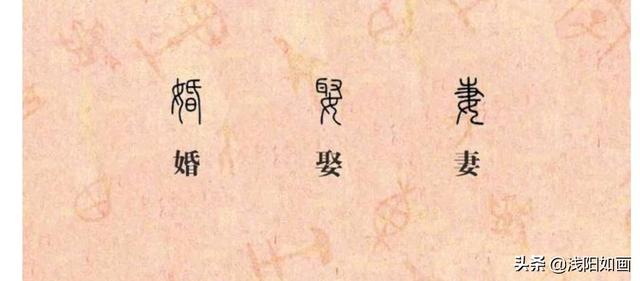 婚 娶 妻
婚 娶 妻
头条 @浅阳如画